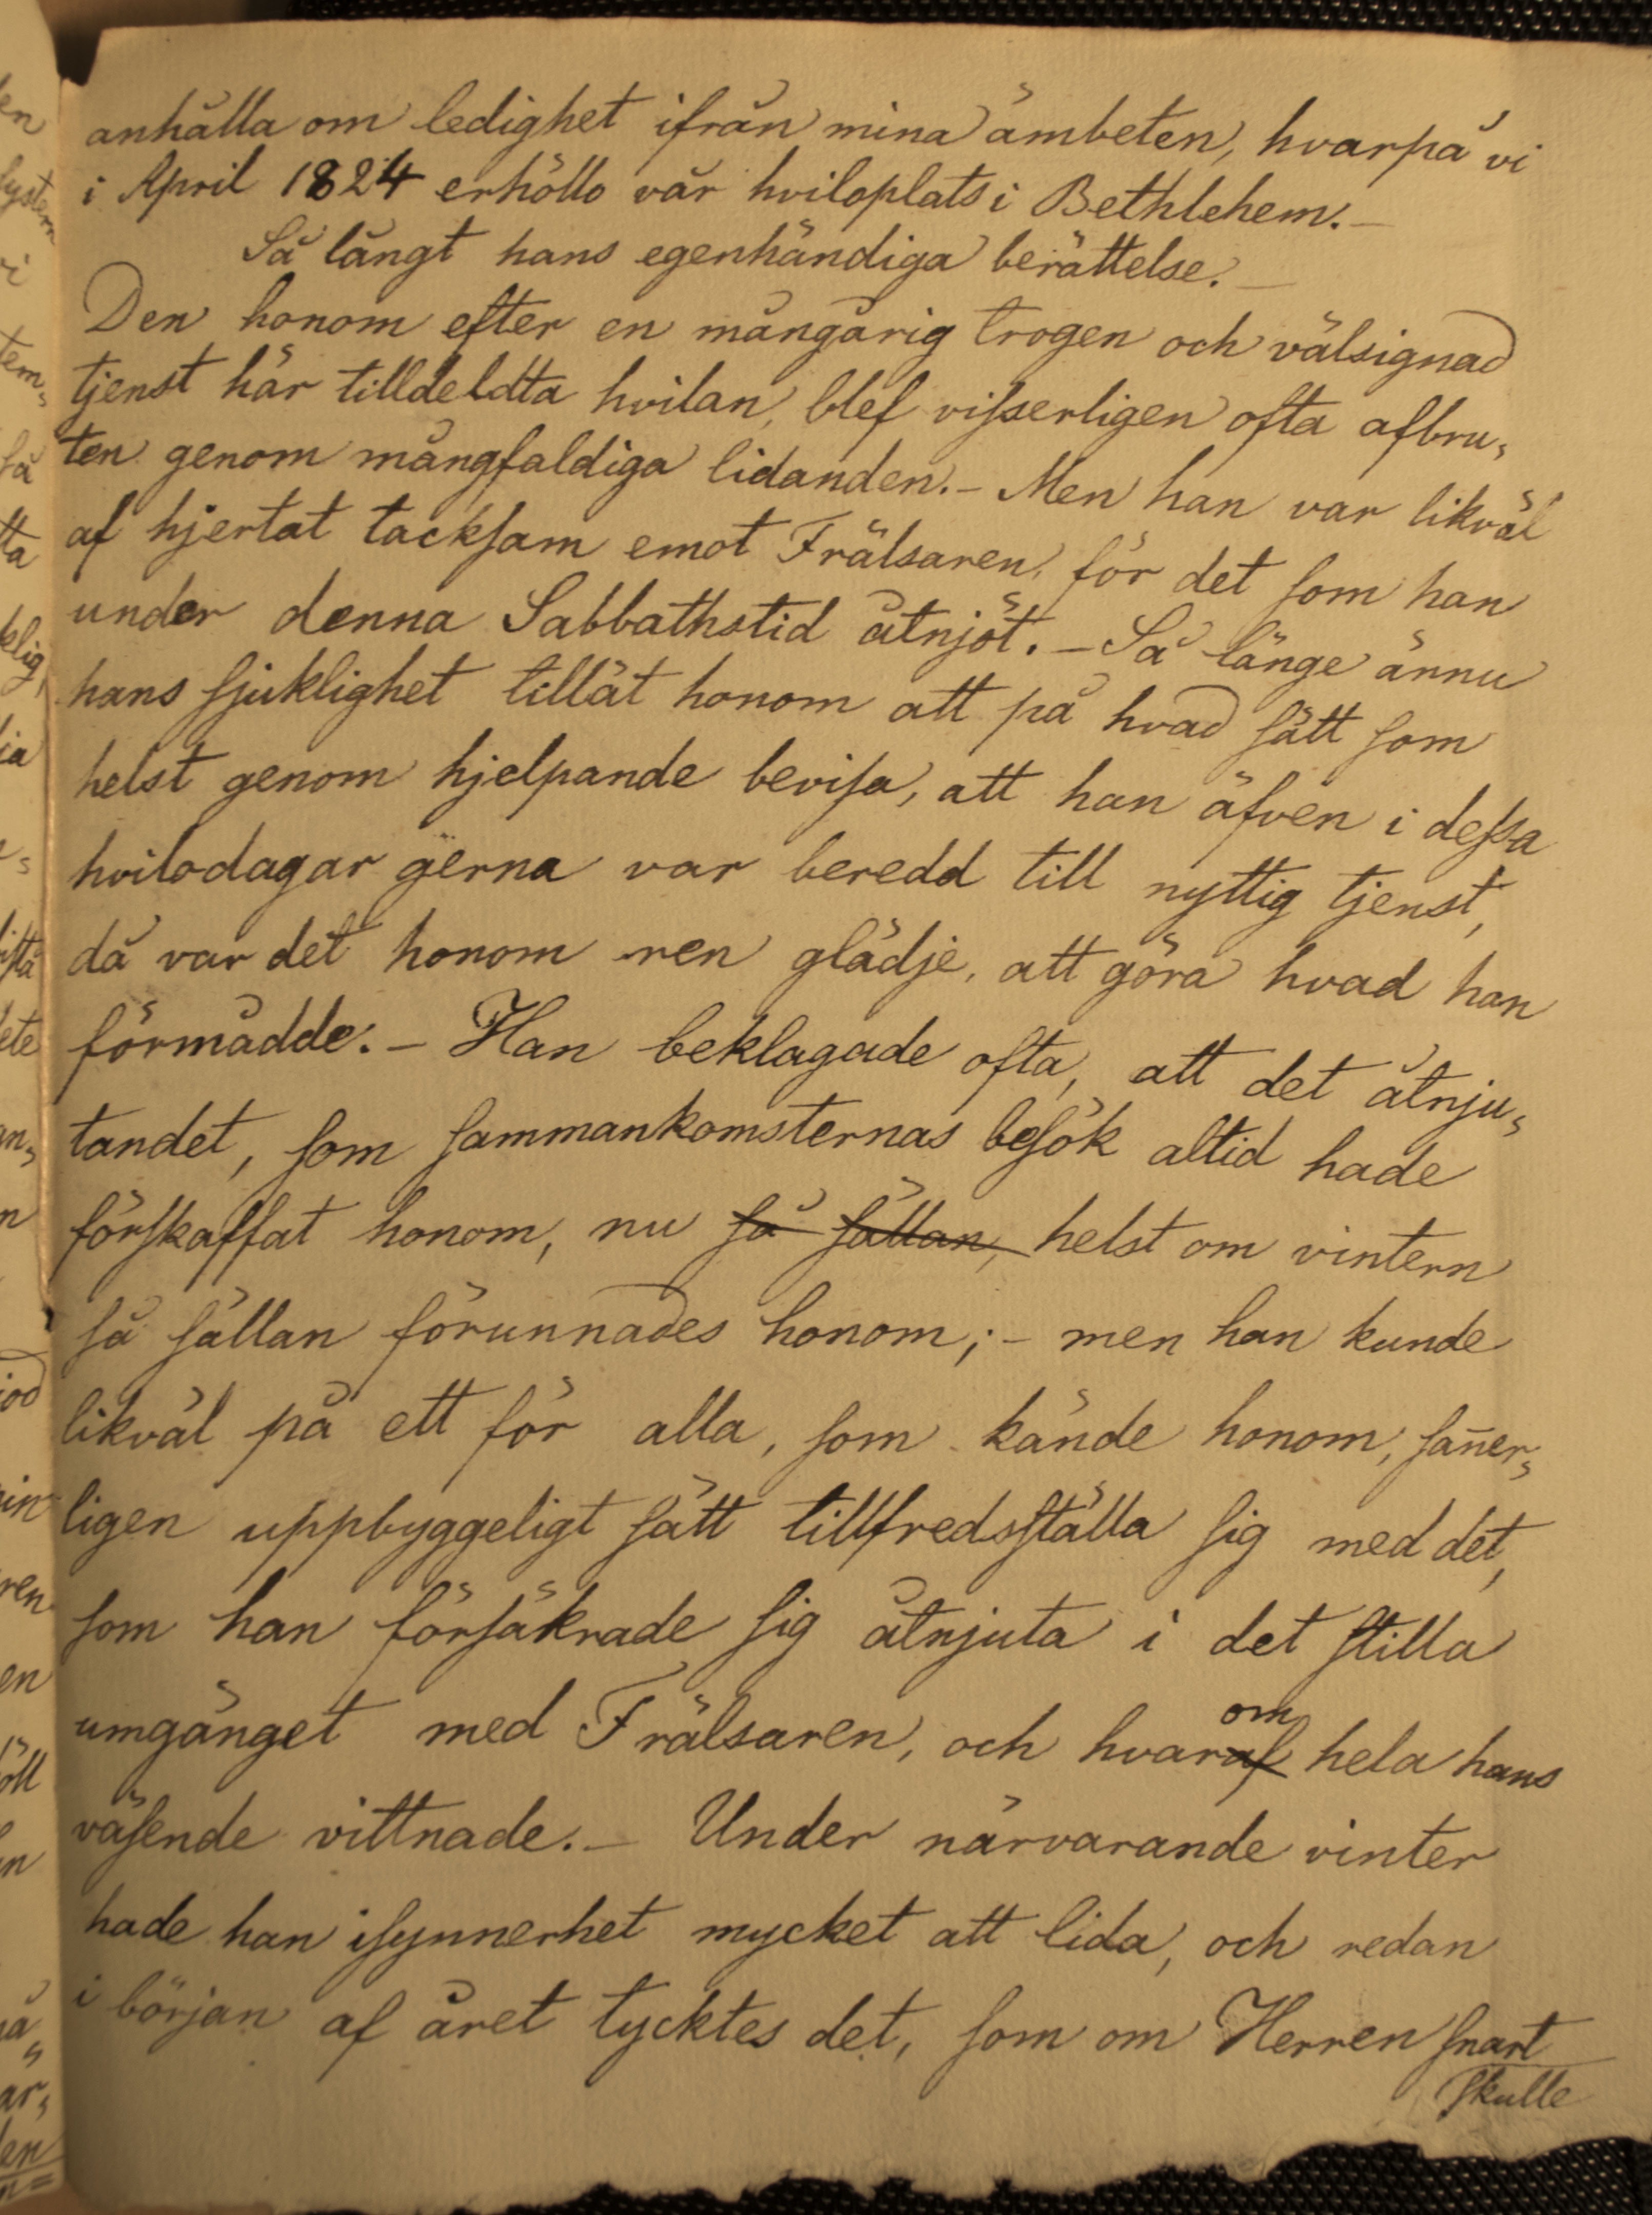 anhålla om ledighet ifrån mina ämbeten, hvarpå vi
i April 1824 erhöllo vår hviloplats i Bethlehem.–
Så långt hans egenhändiga berättelse.–
Den honom efter en mångårig trogen och välsignad
tjenst här tilldeldta hvilan, blef visserligen ofta afbru„
ten genom mångfaldiga lidanden.– Men han var likväl
af hjertat tacksam emot Frälsaren, för det som han
under denna Sabbathstid åtnjöt.– Så länge ännu
hans sjuklighet tillät honom att på hvad sätt som
helst genom hjelpande bevisa, att han äfven i dessa
hvilodagar gerna var beredd till nyttig tjenst,
då var det honom ren glädje, att göra hvad han
förmådde.– Han beklagade ofta, att det åtnju„
tandet, som sammankomsternas besök altid hade
förskaffat honom, nu så sällan, helst om vintern
så sällan förunnades honom;– men han kunde
likväl på ett för alla, som kände honom, san̄er„
ligen uppbyggeligt sätt tillfredsställa sig med det,
som han försäkrade sig åtnjuta i det stilla
umgänget med Frälsaren, och hvaraf om hela hans
väsende vittnade.– Under närvarande vinter
hade han isynnerhet mycket att lida, och redan
i början af året tycktes det, som om Herren snart
skulle